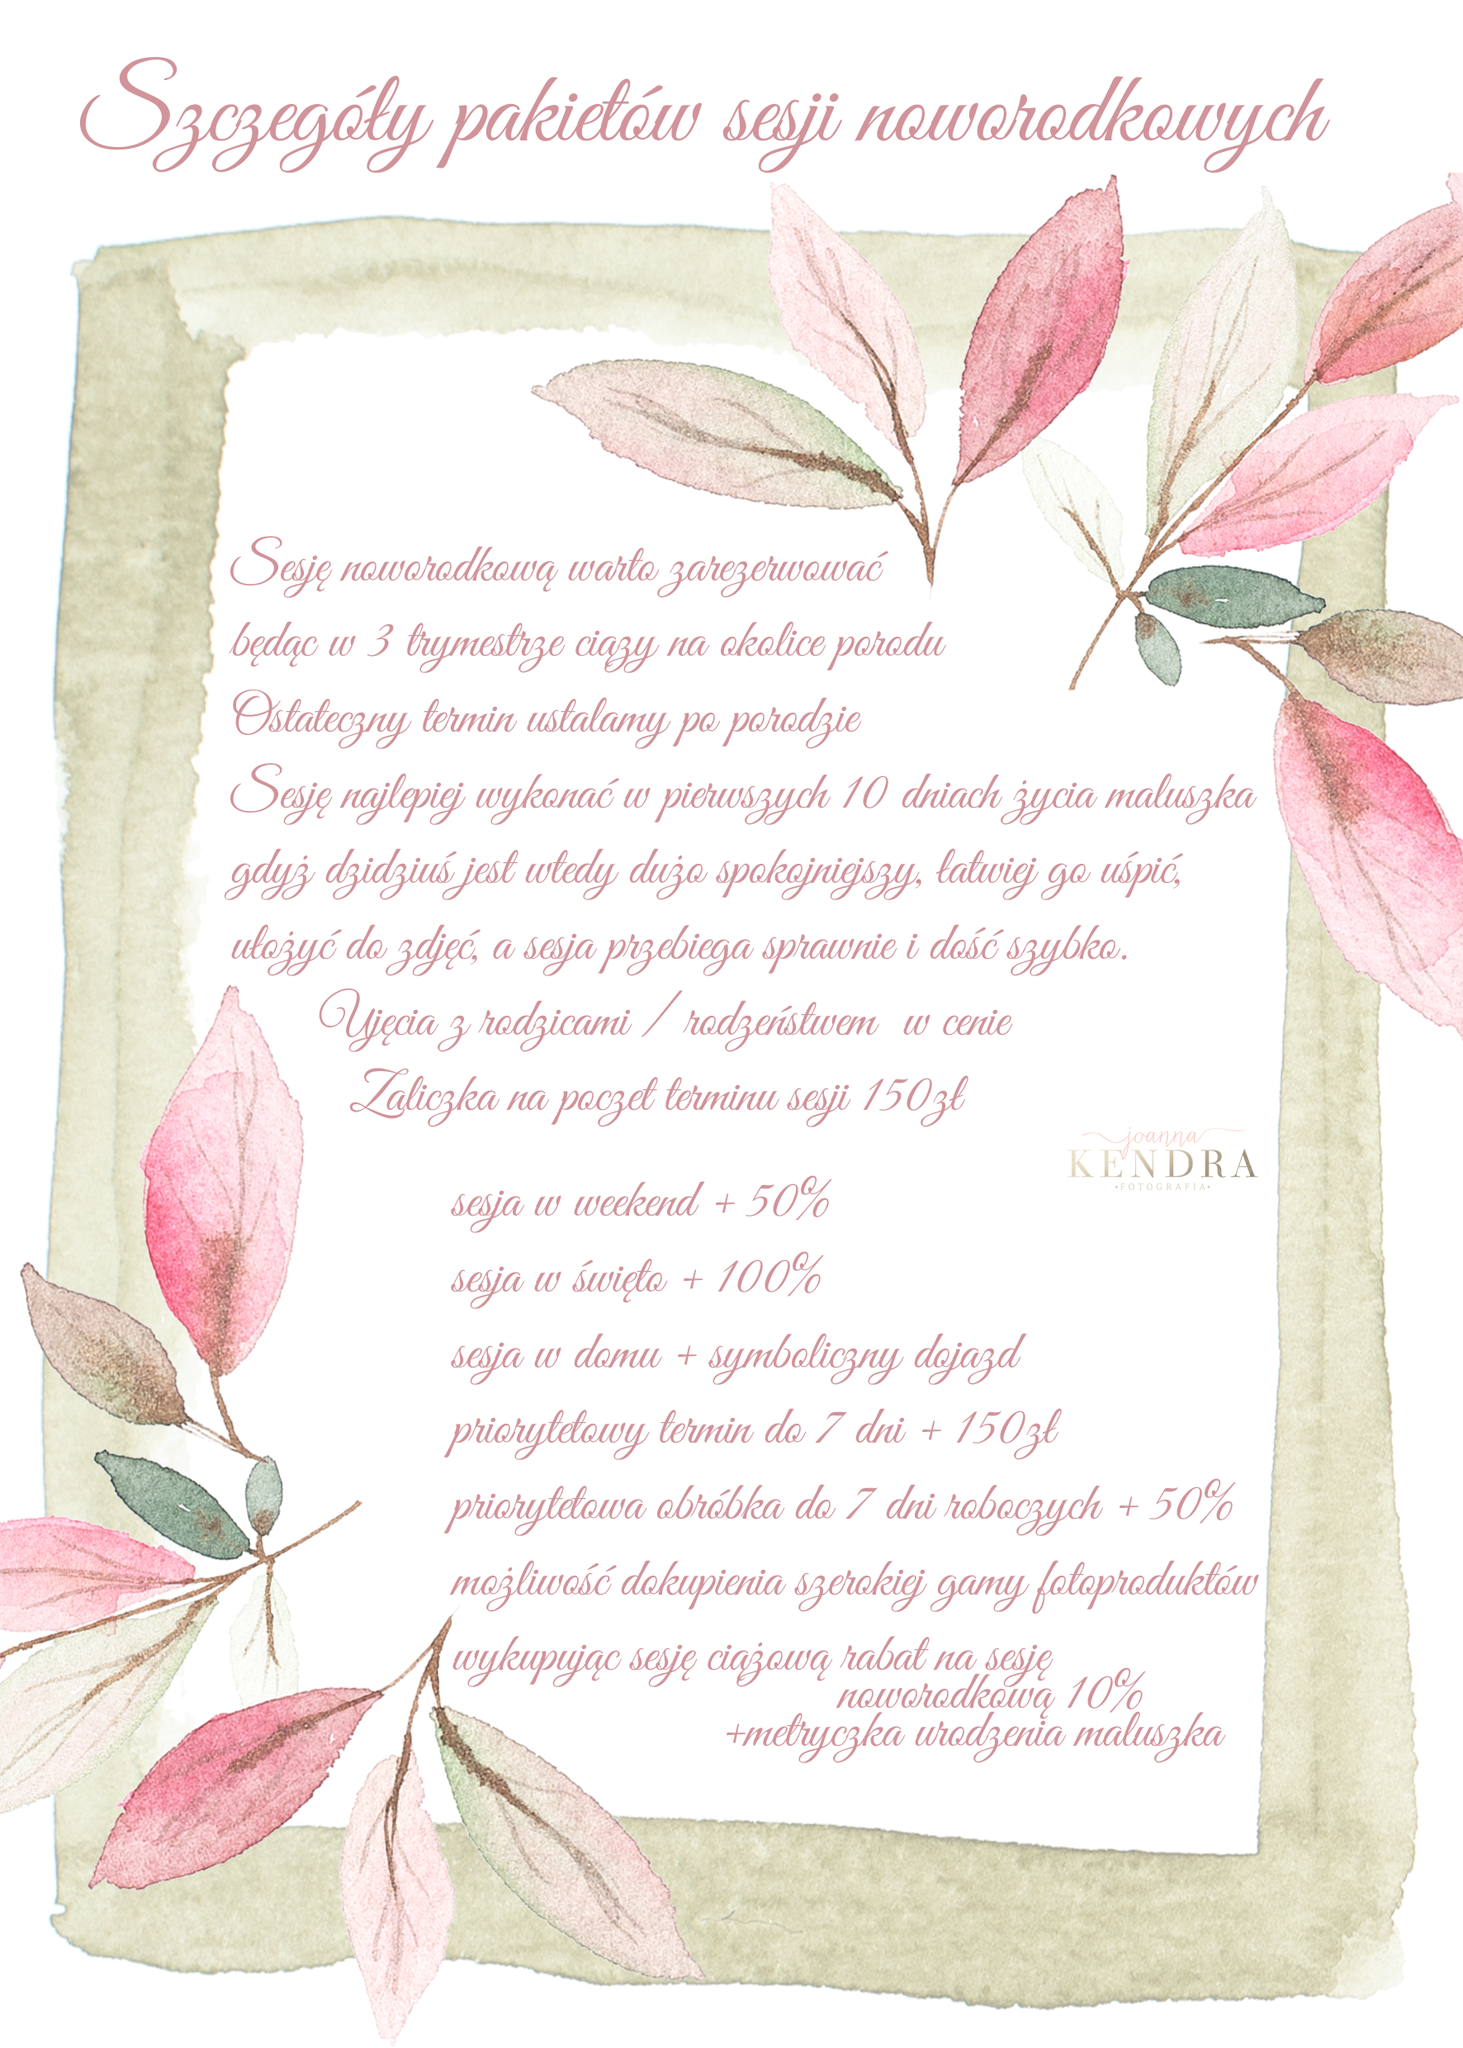 Szczegóły pakietów sesji noworodkowych
Sesję noworodkową warto zarezerwować
będąc w 3 trymestrze ciąży na okolice porodu
Ostateczny termin ustalamy po porodzie
Sesję najlepiej wykonać w pierwszych 10 dniach życia maluszka
gdyż dzidziuś jest wtedy dużo spokojniejszy, łatwiej go uśpić,
ułożyć do zdjęć, a sesja przebiega sprawnie i dość szybko.
Ujęcia z rodzicami / rodzeństwem w cenie
Zaliczka na poczet terminu sesji 150zł
joanna
KENDRA
•FOTOGRAFIA•
sesja w weekend + 50%
sesja w święto + 100%
sesja w domu + symboliczny dojazd
priorytetowy termin do 7 dni + 150zł
priorytetowa obróbka do 7 dni roboczych + 50%
możliwość dokupienia szerokiej gamy fotoproduktów
wykupując sesję ciążową rabat na sesję
noworodkową 10%
+metryczka urodzenia maluszka